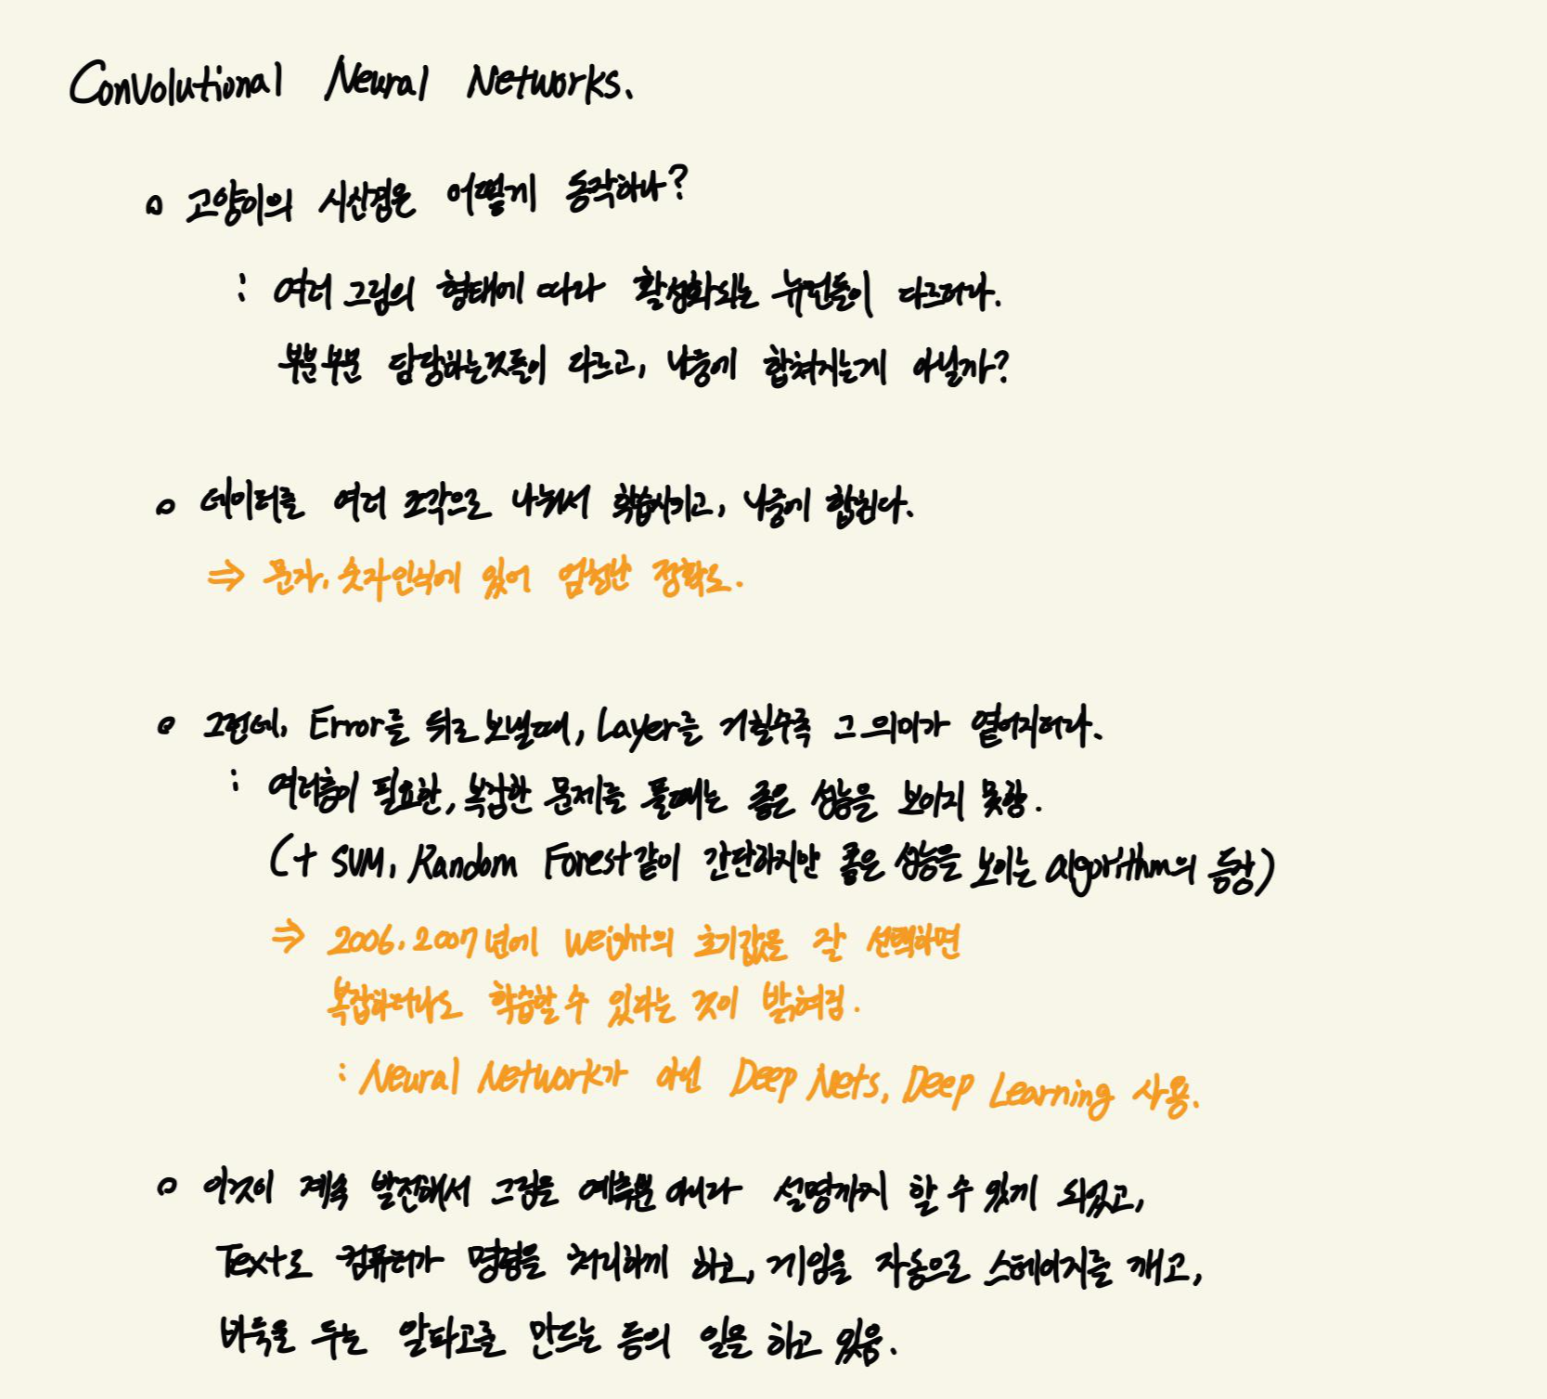 Convolutional Neural Networks.
o 고양이의 시신경은 어떻게 동작하나?
: 여러 그림의 형태에 따라 활성화되는 뉴런들이 다르더라.
부분부분 담당하는것들이 다르고, 나중에 합쳐지는게 아닐까?
o 데이터를 여러 조각으로 나눠서 학습시키고, 나중에 합친다.
⇒ 문자, 숫자인식에 있어 엄청난 정확도.
o 그런데, Error를 뒤로 보낼때, Layer를 거칠수록 그 의미가 옅어지더라.
: 여러층이 필요한, 복잡한 문제를 풀때는 좋은 성능을 보이지 못함.
(+ SVM, Random Forest같이 간단하지만 좋은 성능을 보이는 algorithm의 등장)
⇒ 2006, 2007년에 weight의 초기값을 잘 선택하면
복잡하더라도 학습할 수 있다는 것이 밝혀짐.
: Neural Network가 아닌 Deep Nets, Deep Learning 사용.
o 이것이 계속 발전해서 그림을 예측뿐 아니라 설명까지 할 수 있게 되었고,
Text로 컴퓨터가 명령을 처리하게 하고, 게임을 자동으로 스테이지를 깨고,
바둑을 두는 알파고를 만드는 등의 일을 하고 있음.